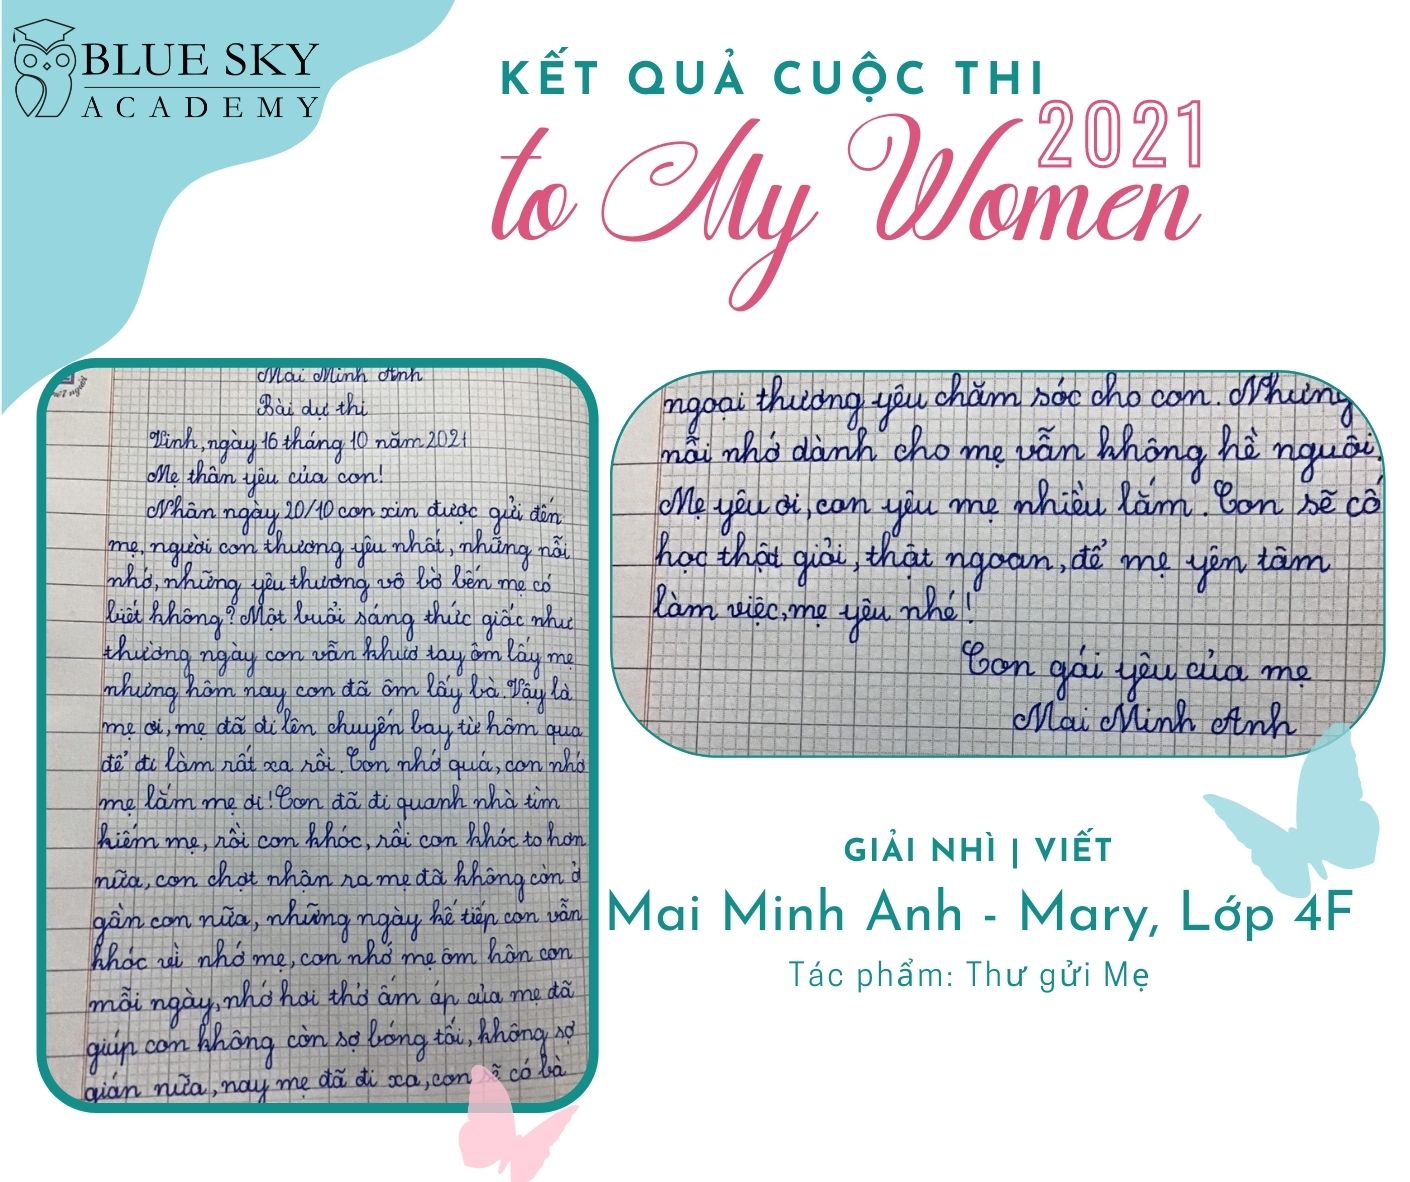 BLUE SKY
ACADEMY
KẾT QUẢ CUỘC THI
2021
to My Women
Mai Minh Anh
Bài dự thi
Vinh, ngày 16 tháng 10 năm 2021
Mẹ thân yêu của con!
Nhân ngày 20/10 con xin được gửi đến
mẹ, người con thương yêu nhất, những nỗi
nhớ, những yêu thương vô bờ bến mẹ có
biết không? Một buổi sáng thức giấc như
thường ngày con vẫn khươ tay ôm lấy mẹ
nhưng hôm nay con đã ôm lấy bà. Vậy là
mẹ ơi, mẹ đã đi lên chuyến bay từ hôm qua
để đi làm rất xa rồi. Con nhớ quá, con nhớ
mẹ lắm mẹ ơi! Con đã đi quanh nhà tìm
kiếm mẹ, rồi con khóc, rồi con khóc to hơn
nữa, con chợt nhận ra mẹ đã không còn ở
gần con nữa, những ngày kế tiếp con vẫn
khóc vì nhớ mẹ, con nhớ mẹ ôm hôn con
mỗi ngày, nhớ hơi thở ấm áp của mẹ đã
giúp con không còn sợ bóng tối, không sợ
gián nữa, nay mẹ đã đi xa, con sẽ có bà
ngoại thương yêu chăm sóc cho con. Nhưng
nỗi nhớ dành cho mẹ vẫn không hề nguôi.
Mẹ yêu ơi, con yêu mẹ nhiều lắm. Con sẽ cố
học thật giỏi, thật ngoan, để mẹ yên tâm
làm việc, mẹ yêu nhé!
Con gái yêu của mẹ
Mai Minh Anh
GIẢI NHÌ | VIẾT
Mai Minh Anh - Mary, Lớp 4F
Tác phẩm: Thư gửi Mẹ